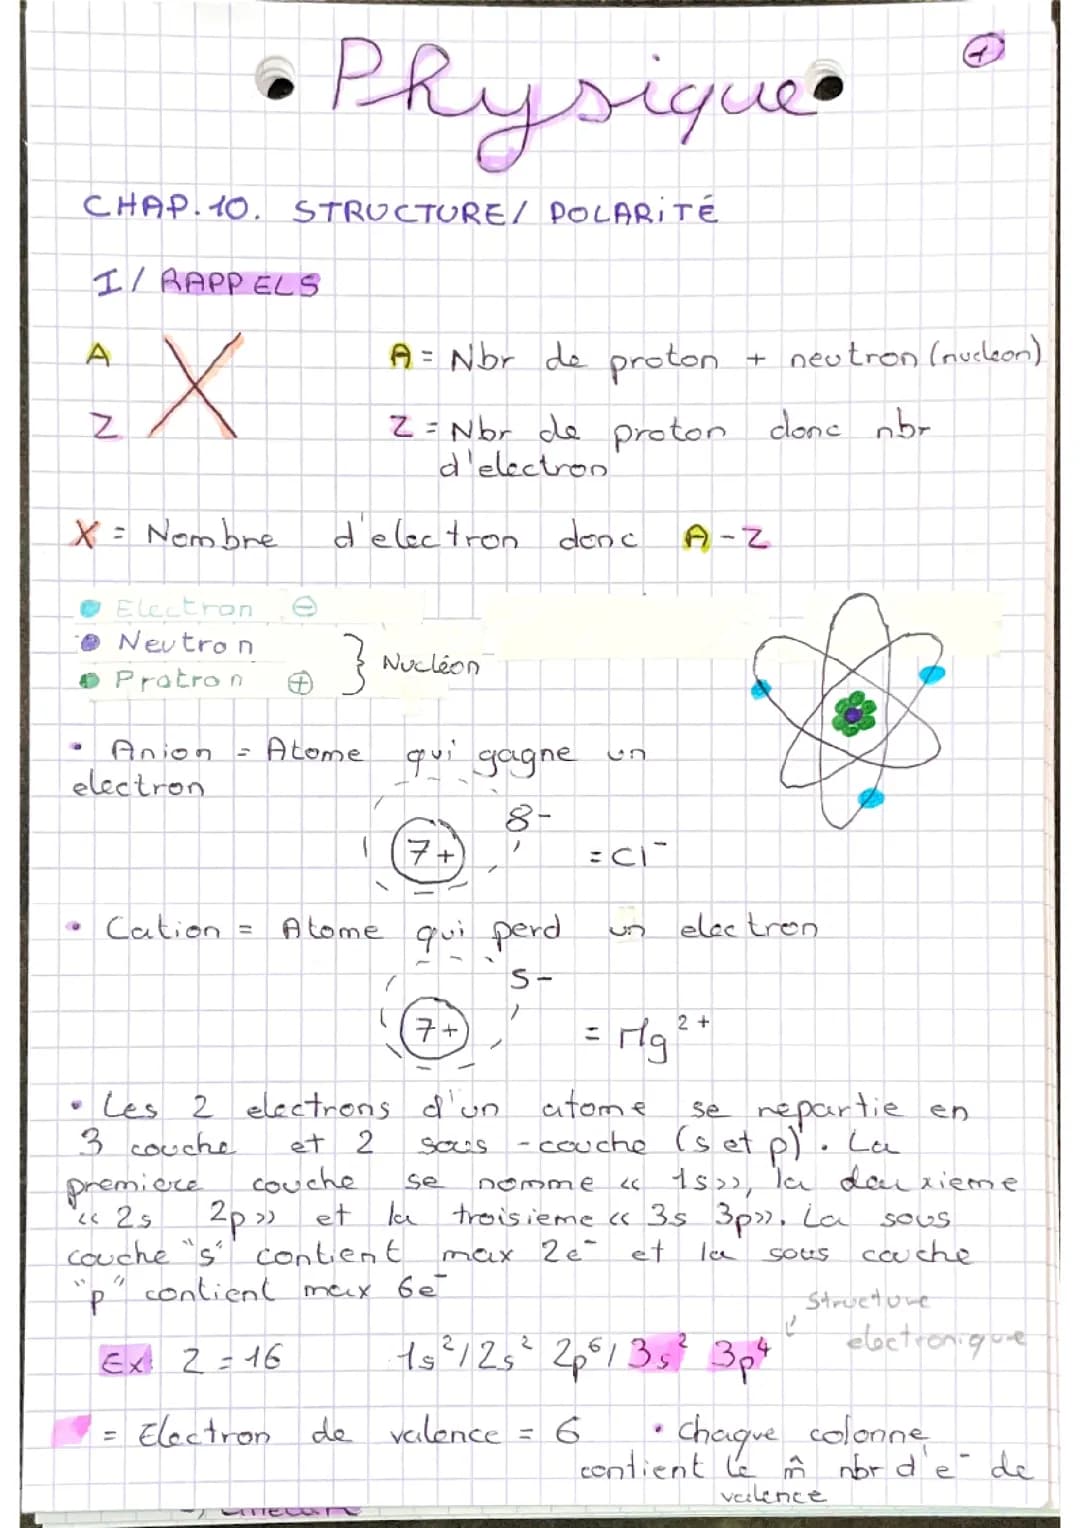 Physique
1
CHAP.10. STRUCTURE/ POLARiTÉ
I/ RAPPELS
A
X
A = Nbr de proton + neutron (nucleon)
Z
Z = Nbr de proton donc nbr
d'electron
X = Nombre d'electron donc A-Z
Electron ⊖
Neutron
Protron ⊕
} Nucléon
• Anion = Atome qui gagne un
electron
8-
7+
= Cl⁻
• Cation = Atome qui perd un electron
5-
7+
= Mg²⁺
• Les 2 electrons d'un atome se repartie en
3 couche et 2 sous-couche (s et p). La
premiere couche se nomme << 1s>>, la deuxieme
<< 2s 2p >> et la troisieme << 3s 3p>>. La sous
couche "s" contient max 2e⁻ et la sous couche
"p" contient max 6e⁻
Structure
electronique
Ex Z = 16 1s²/2s² 2p⁶/ 3s² 3p⁴
= Electron de valence = 6
• Chaque colonne
contient le m̂ nbr d'e⁻ de
valence